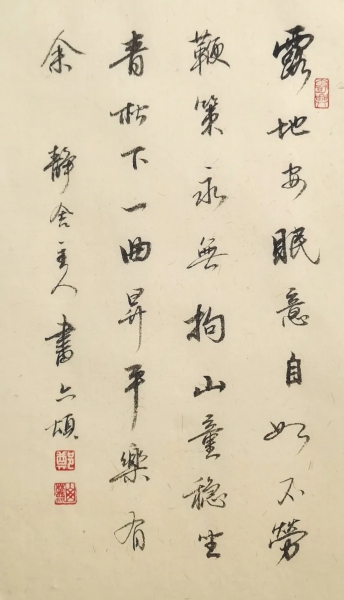 露地安眠意自如不勞
鞭策永無拘山童穩坐
青松下一曲昇平樂有
余
靜舍主人書六頌